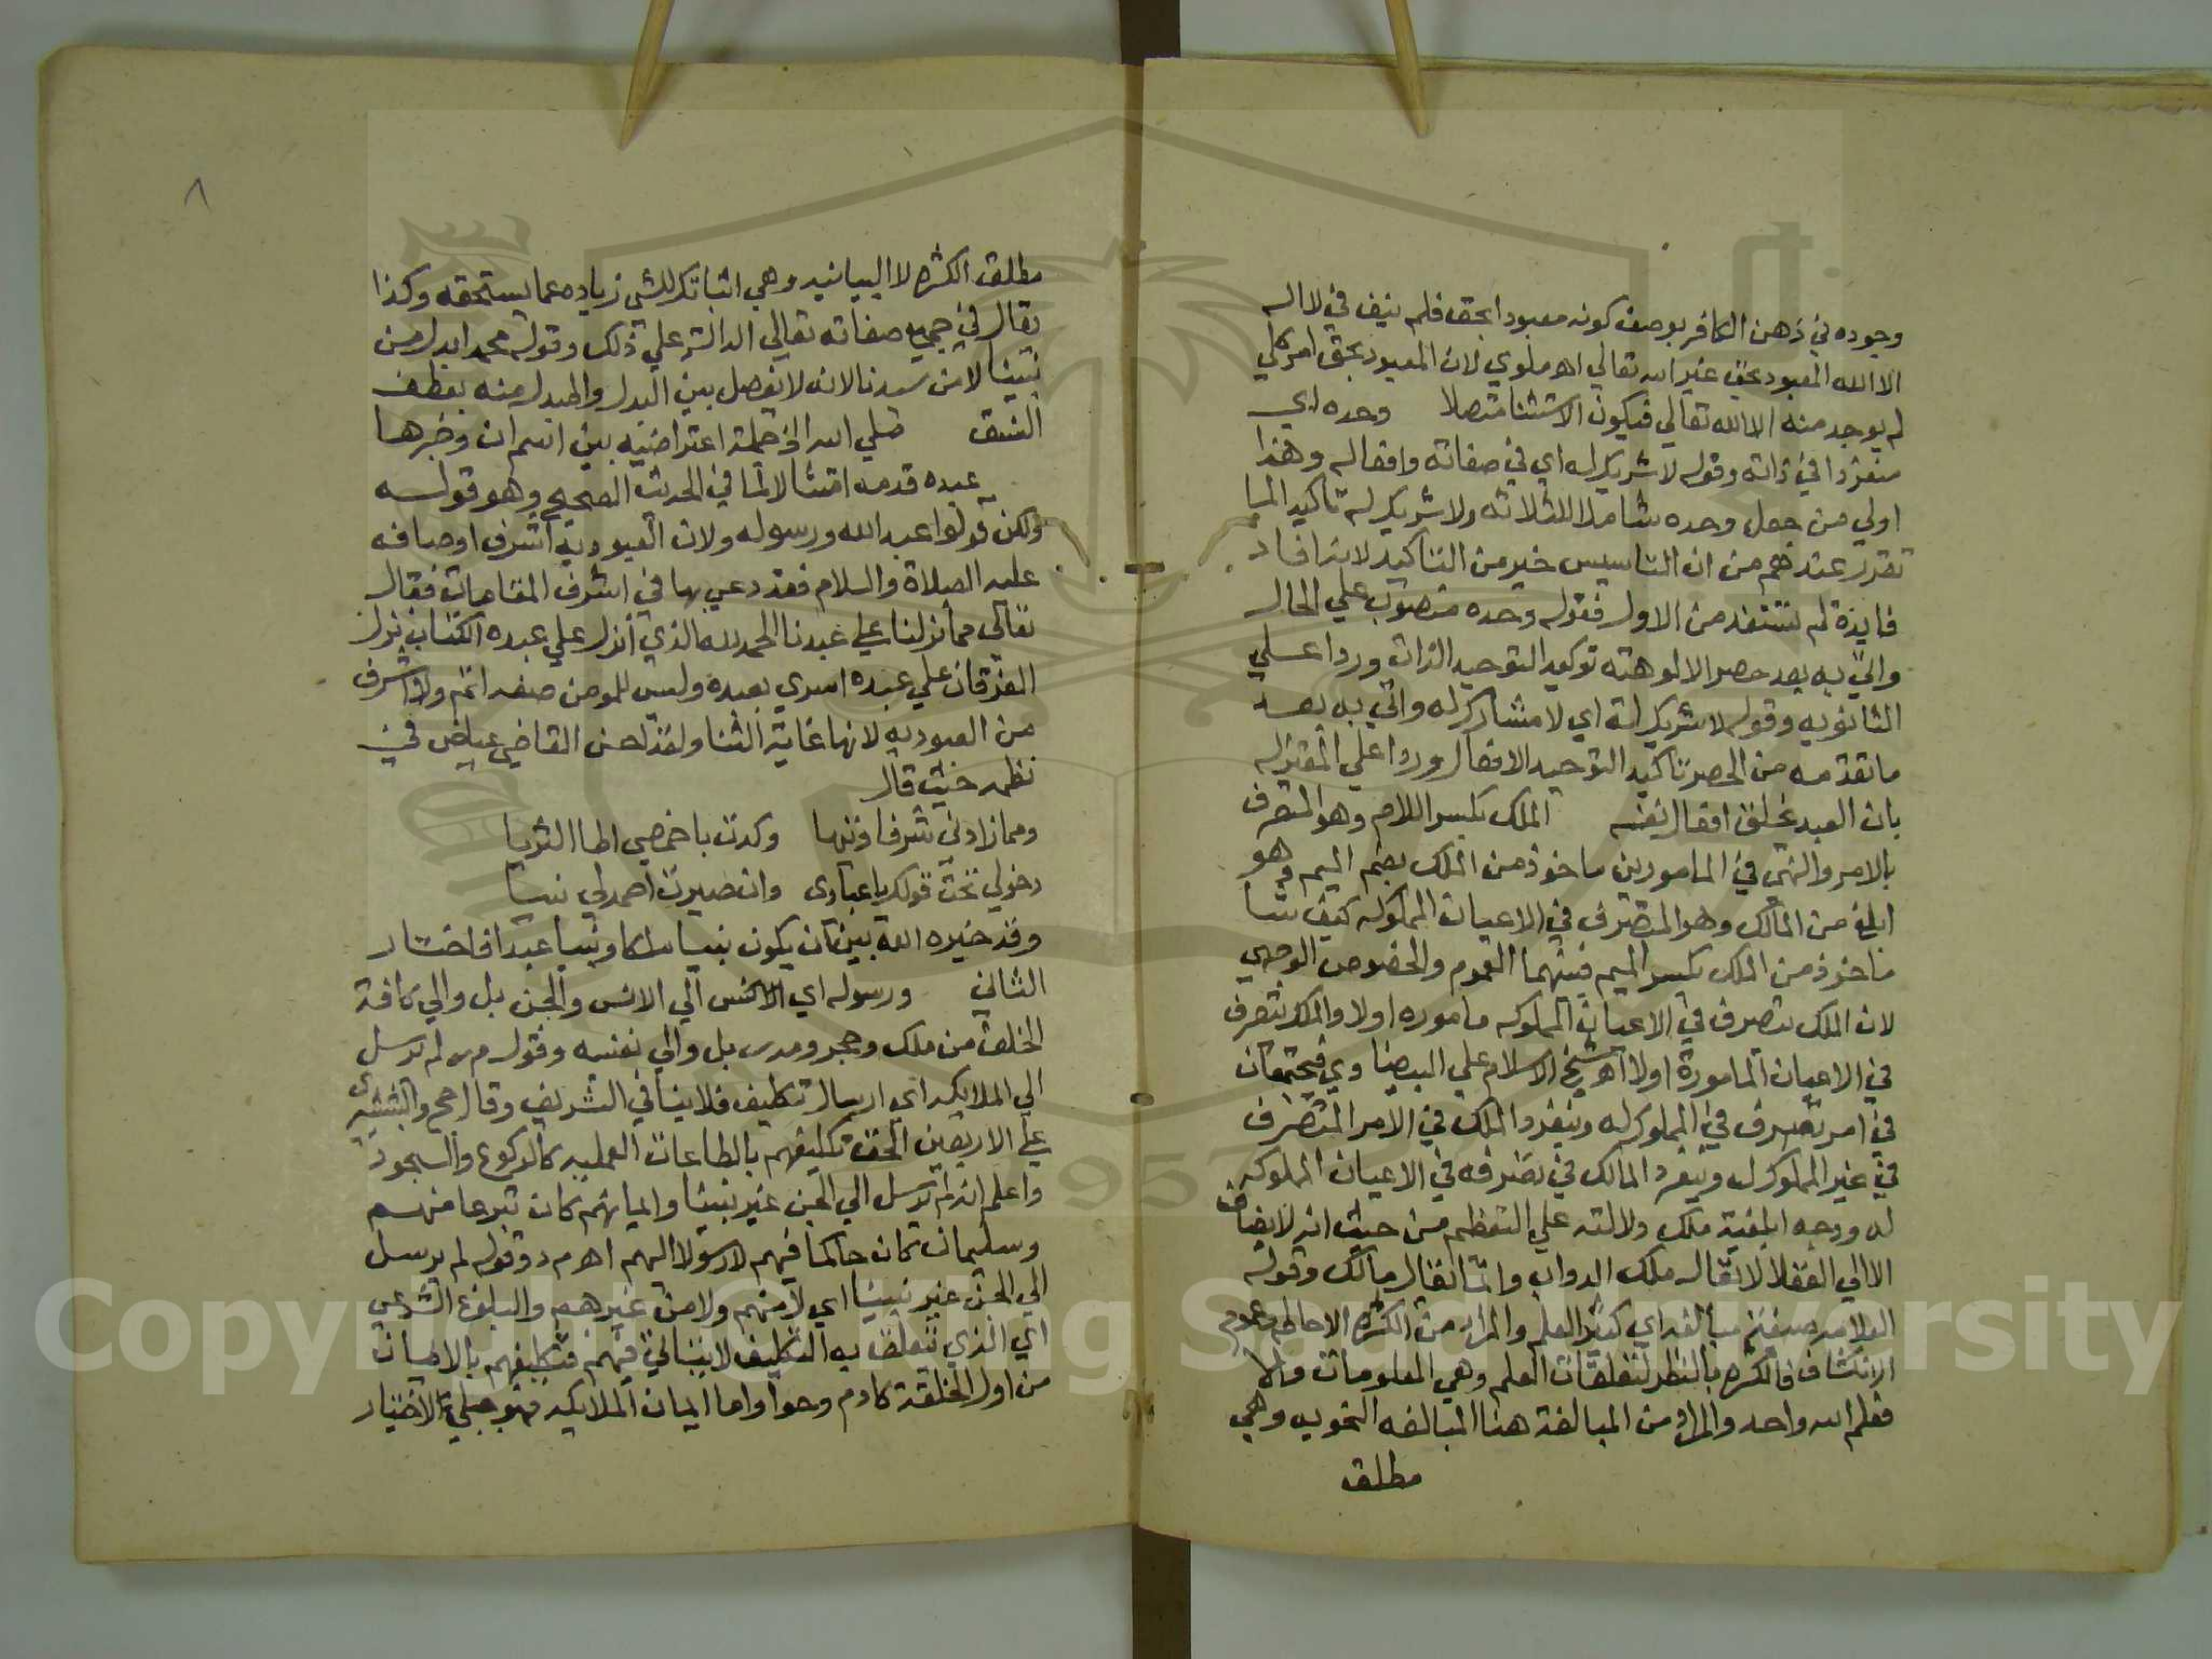 وجوده في ذهن الكافر بوصف كونه معبودا بحق فلم ينف في لا اله
الا الله المعبود بحق غير الله تعالي اهـ ملوي لان المعبود بحق امر كلي
لم يوجد منه الا الله تعالي فيكون الاستثنا متصلا وحده اي
منفردا في ذاته وقوله لا شريك له اي في صفاته وافعاله وهذا
اولي من جعل وحده شاملا للثلاثه ولا شريك له تاكيد لما
تقرر عندهم من ان التاسيس خير من التاكيد لانه افاد
فايدة لم تستفد من الاول فقوله وحده منصوب علي الحال
واتي به بعد حصر الالوهته توكيد التوحيد الذات وردا علي
الثانويه وقوله لا شريك له اي لا مشارك له واتي به بعد
ما تقدمه من الحصر تاكيد التوحيد الافعال وردا علي المعتزله
بان العبد يخلق افعال نفسه الملك بكسر اللام وهو المتصرف
بالامر والنهي في المامورين ماخوذ من الملك بضم الميم وهو
ابلغ من المالك وهو المتصرف في الاعيان المملوكه كيف شا
ماخوذ من الملك بكسر الميم فبينهما العموم والخصوص الوجهي
لان الملك يتصرف في الاعيان المملوكه ماموره اولا والملك يتصرف
في الاعيان المامورة اولا اهـ شيخ الاسلام علي البيضاوي فيجتمعان
في امر يتصرف في المملوك له وينفرد الملك في الامر المتصرف
في غير المملوك له وينفرد المالك في تصرفه في الاعيان المملوكه
له ووجه ابلغية ملك دلالته علي التعظيم من حيث انه لا يضاف
الا الي العقلا لا يقال ملك الدواب وانما يقال مالك وقوله
العلام صيغة مبالغه اي كثير العلم والمراد من الكثره الاحاطه وعدم
الانكشاف فالكثره بالنظر لتعلقات العلم وهي المعلومات والا
فعلم الله واحد والمراد من المبالغة هنا المبالغه النحويه وهي
مطلق
٨
مطلق الكثره لا البيانيه وهي اثباتك للشي زياده عما يستحقه وكذا
يقال في جميع صفاته تعالي الدالة علي ذلك وقوله محمد ابدل من
نبينا لا من سيدنا لانه لا يفصل بين البدل والمبدل منه بعطف
النسق صلي الله الخ جملة اعتراضيه بين اسم ان وخبرها
عبده قدمه امتثالا لما في الحديث الصحيح وهو قوله
ولكن قولوا عبد الله ورسوله ولان العبودية اشرف اوصافه
عليه الصلاة والسلام فقد دعي بها في اشرف المقامات فقال
تعالي مما نزلنا علي عبدنا الحمد لله الذي أنزل علي عبده الكتاب نزل
الفرقان علي عبده اسري بعبده وليس للمومن صفه اتم ولا اشرف
من العبوديه لانها غاية الثنا ولقد احسن القاضي عياض في
نظمه حيث قال
ومما زادني شرفا وتيها وكدت باخمصي اطا الثريا
دخولي تحت قولك يا عبادي وان صيرت احمد لي نبيا
وقد خيره الله بين ان يكون نبيا ملكا ونبيا عبدا فاختار
الثاني ورسوله اي الي الانس والجن بل والي كافة
الخلق من ملك وحجر ومدر بل والي نفسه وقول م ر لم يرسل
الي الملايكه اي ارسال تكليف فلا ينافي التشريف وقال حج والشبشيري
علي الاربعين الحق تكليفهم بالطاعات العمليه كالركوع والسجود
واعلم انه لم يرسل الي الجن غير نبينا وايمانهم كان تبرعا منهم
وسليمان كان حاكما فيهم لا رسولا اليهم اهـ م د وقوله لم يرسل
الي الجن غير نبينا اي لا منهم ولا من غيرهم والبلوغ الشرعي
اي الذي يتعلق به التكليف لا يتاتي فيهم فتكليفهم بالايمان
من اول الخلقة كادم وحوا واما ايمان الملايكه فهو جبلي لا اختيار